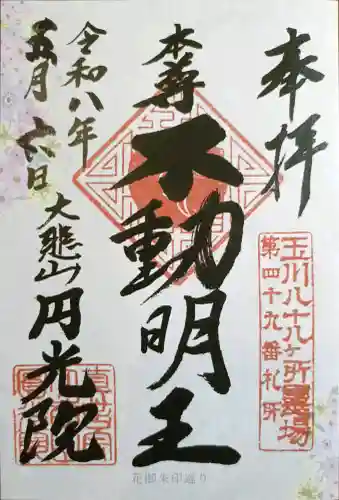 奉拝
玉川八十八ヶ所霊場
第四十九番札所
本尊
不動明王
令和八年
五月六日
大悲山
円光院
花御朱印巡り